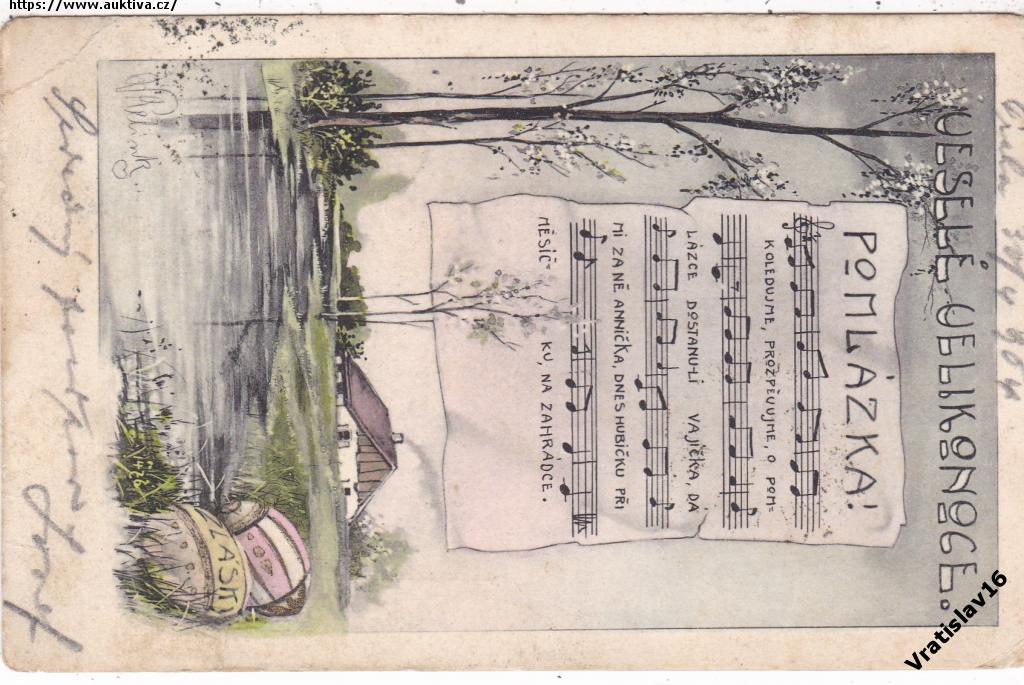 https://www.auktiva.cz/
VESELÉ VELIKONOCE.
POMLÁZKA!
KOLEDUJME, PROZPĚVUJME, O POM=
LÁZCE DOSTANU-LI VAJÍČKA, DÁ
MI ZA NĚ ANNIČKA, DNES HUBIČKU PŘI
MĚSÍČ= KU, NA ZAHRÁDCE.
Z LÁSKY
Srdečný pozdrav
Josef
Vratislav16